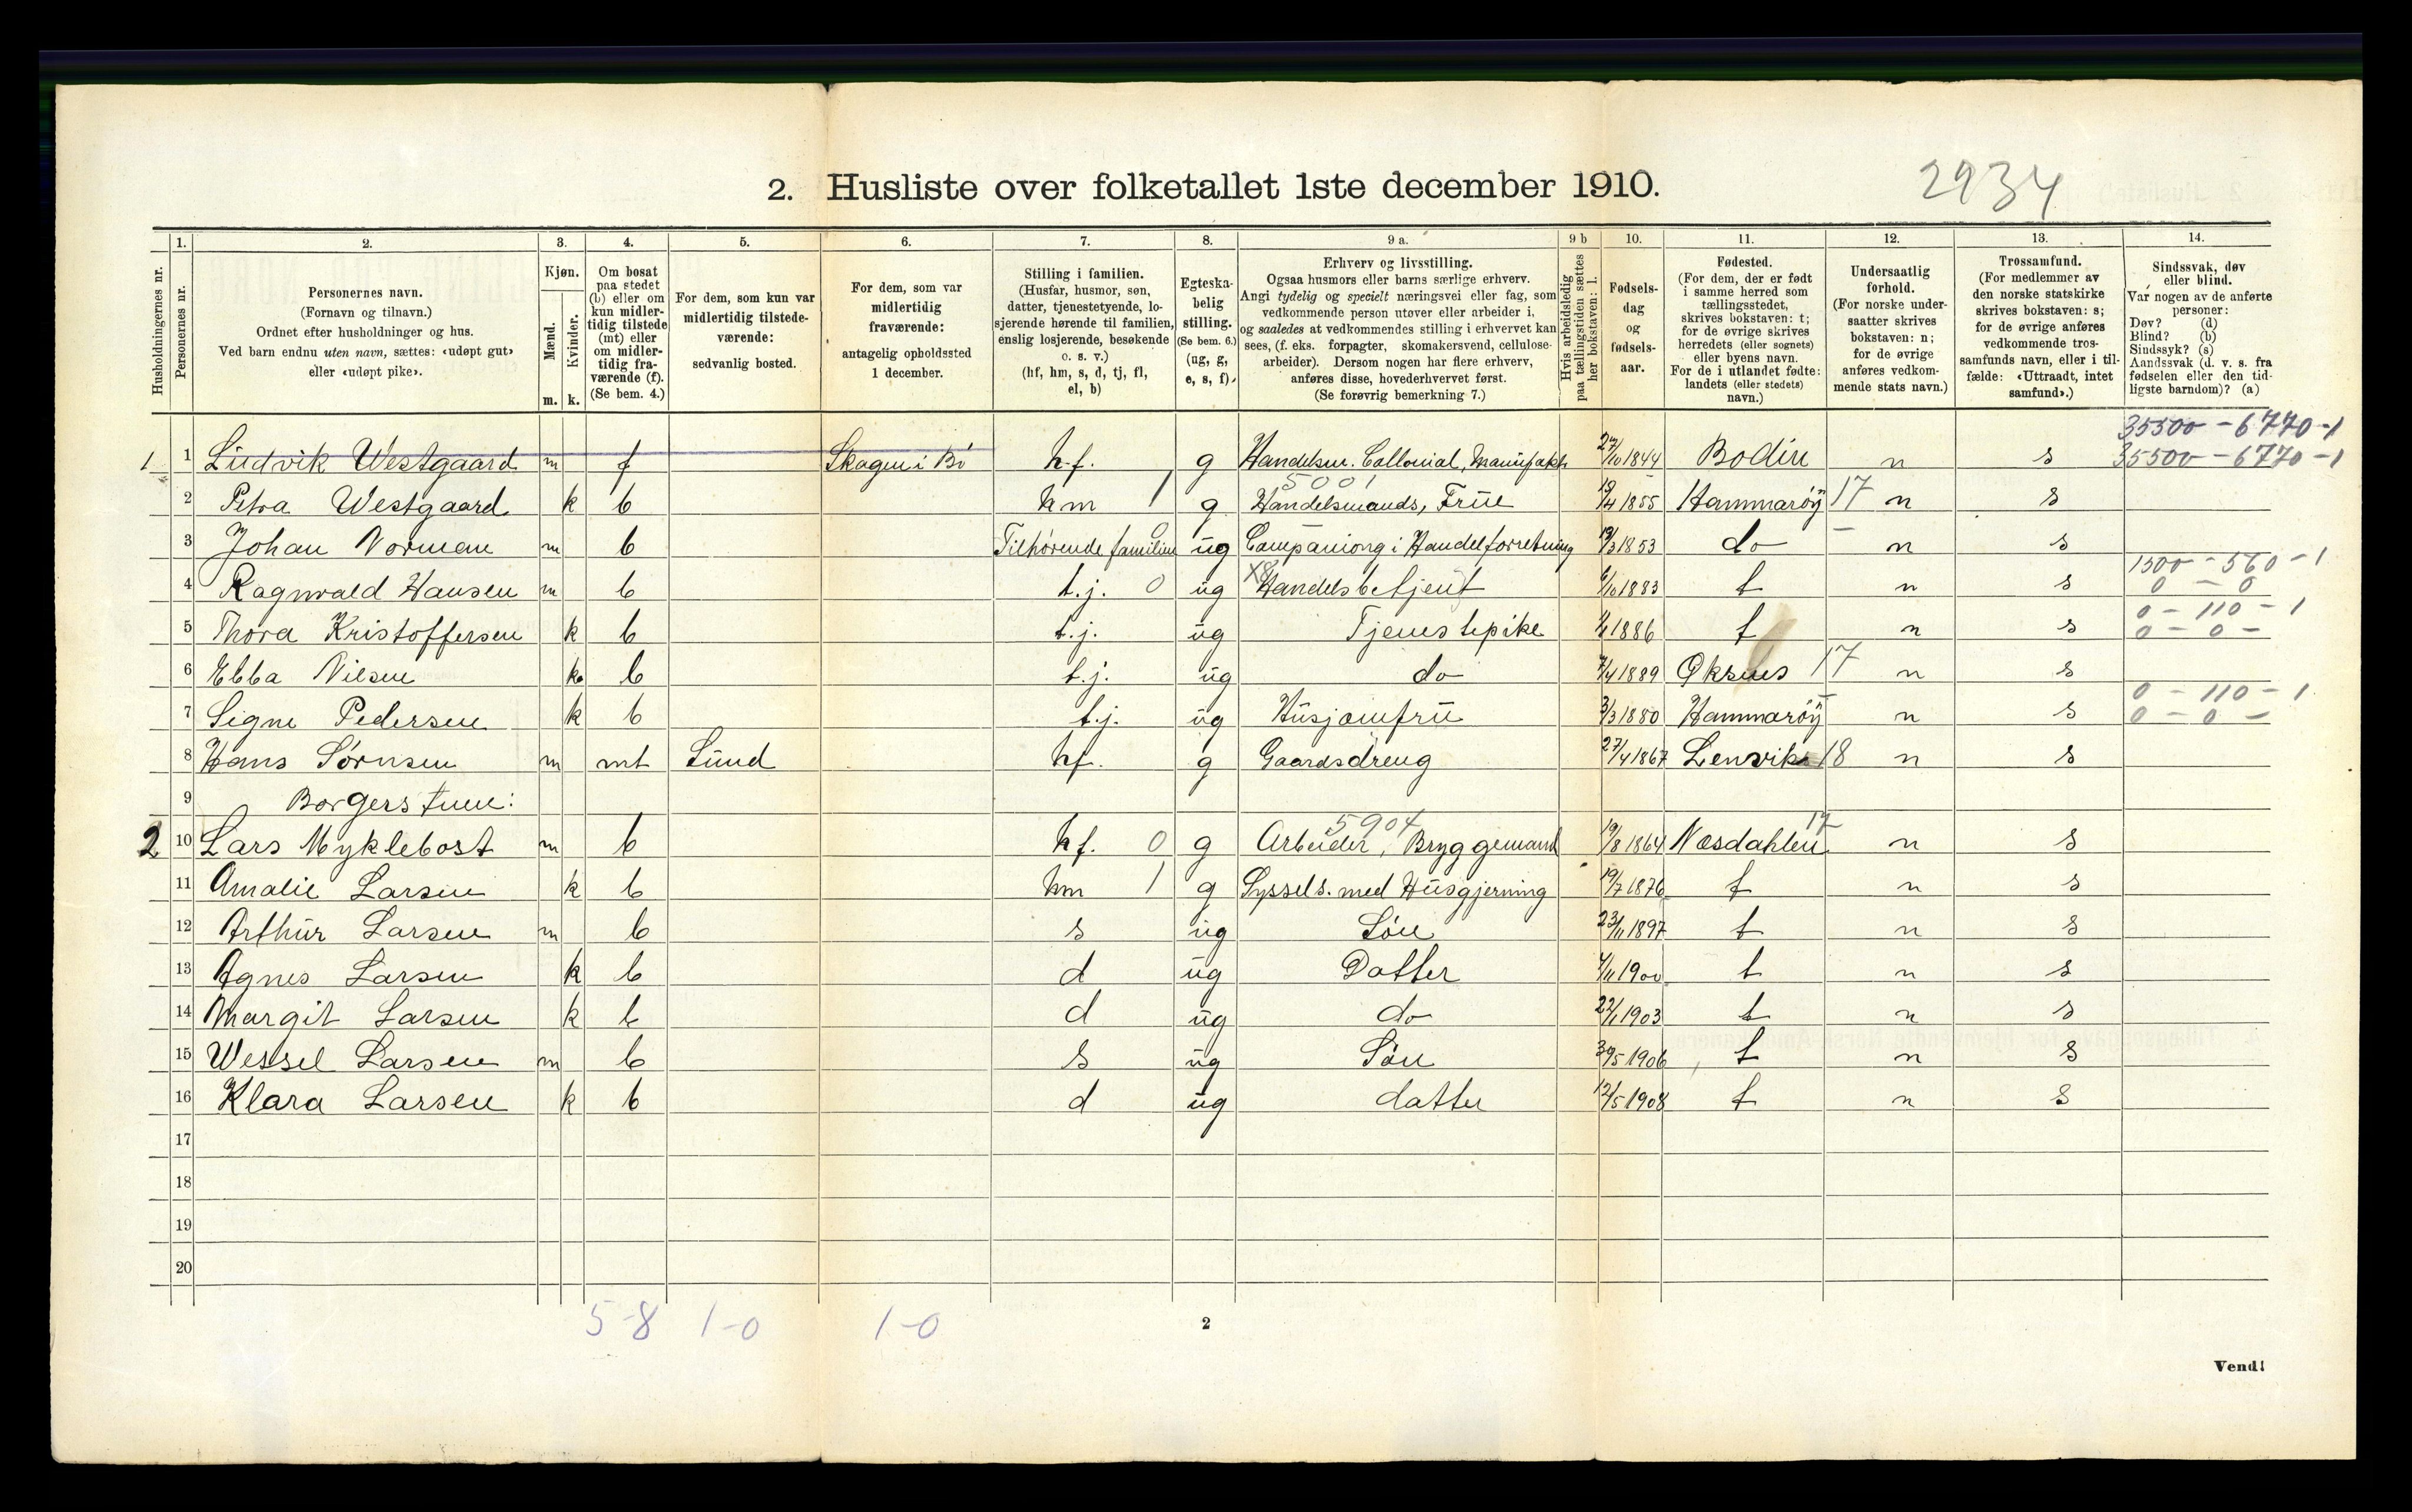 2. Husliste over folketallet 1ste december 1910. 2934
Husholdningernes nr.
1. Personernes nr.
2. Personernes navn. (Fornavn og tilnavn.) Ordnet efter husholdninger og hus. Ved barn endnu uten navn, sættes: «udøpt gut» eller «udøpt pike».
3. Kjøn. Mænd. m. Kvinder. k.
4. Om bosat paa stedet (b) eller om kun midlertidig tilstede (mt) eller om midlertidig fraværende (f). (Se bem. 4.)
5. For dem, som kun var midlertidig tilstedeværende: sedvanlig bosted.
6. For dem, som var midlertidig fraværende: antagelig opholdssted 1 december.
7. Stilling i familien. (Husfar, husmor, søn, datter, tjenestetyende, losjerende hørende til familien, enslig losjerende, besøkende o. s. v.) (hf, hm, s, d, tj, fl, el, b)
8. Egteskabelig stilling. (Se bem. 6.) (ug, g, e, s, f).
9 a. Erhverv og livsstilling. Ogsaa husmors eller barns særlige erhverv. Angi tydelig og specielt næringsvei eller fag, som vedkommende person utøver eller arbeider i, og saaledes at vedkommendes stilling i erhvervet kan sees, (f. eks. forpagter, skomakersvend, cellulosearbeider). Dersom nogen har flere erhverv, anføres disse, hovederhvervet først. (Se forøvrig bemerkning 7.)
9 b Hvis arbeidsledig paa tællingstiden sættes her bokstaven: l.
10. Fødselsdag og fødselsaar.
11. Fødested. (For dem, der er født i samme herred som tællingsstedet, skrives bokstaven: t; for de øvrige skrives herredets (eller sognets) eller byens navn. For de i utlandet fødte: landets (eller stedets) navn.)
12. Undersaatlig forhold. (For norske undersaatter skrives bokstaven: n; for de øvrige anføres vedkommende stats navn.)
13. Trossamfund. (For medlemmer av den norske statskirke skrives bokstaven: s; for de øvrige anføres vedkommende trossamfunds navn, eller i tilfælde: «Uttraadt, intet samfund».)
14. Sindssvak, døv eller blind. Var nogen av de anførte personer: Døv? (d) Blind? (b) Sindssyk? (s) Aandssvak (d. v. s. fra fødselen eller den tidligste barndom)? (a)
35500 - 6770 - 1
1 1 Ludvik Westgaard m f Skagen i Bö h.f. g Handelsm. Collonial, Manufakt 27/10 1844 Bodin n s 35500 - 6770 - 1
5001
2 Petra Westgaard k b hm 1 g Handelsmands, Frue 18/4 1855 Hammaröy 17 n s
3 Johan Norman m b Tilhörende familien 0 ug Companiong i Handelforretning 19/3 1853 do n s
1500 - 560 - 1
4 Ragnvald Hansen m b t.j. 0 ug X8 Handelsbetjent 6/10 1883 t n s 0 - 0
0 - 110 - 1
5 Thora Kristoffersen k b t.j. ug Tjenestepike 1886 t n s 0 - 0 -
6 Ebba Nilsen k b t.j. ug do 7/4 1889 Øksnes 17 n s
0 - 110 - 1
7 Signe Pedersen k b t.j. ug Husjomfru 3/3 1880 Hammaröy n s 0 - 0 -
8 Hans Sörnsen m mt Sund hf. g Gaardsdreng 27/4 1867 Lenvik 18 n s
9 Borgerstuen:
5904 17
2 10 Lars Myklebost m b hf. 0 g Arbeider, Bryggemand 19/8 1864 Næsdahlen n s
11 Amalie Larsen k b hm 1 g Syssels. med Husgjerning 19/7 1876 t n s
12 Arthur Larsen m b s ug Sön 23/11 1897 t n s
13 Agnes Larsen k b d ug Datter 4/11 1900 t n s
14 Margit Larsen k b d ug do 22/1 1903 t n s
15 Wessel Larsen m b s ug Sön 30/5 1906 t n s
16 Klara Larsen k b d ug datter 12/5 1908 t n s
17
18
19
20
5-8 1-0 1-0
2
Vend!